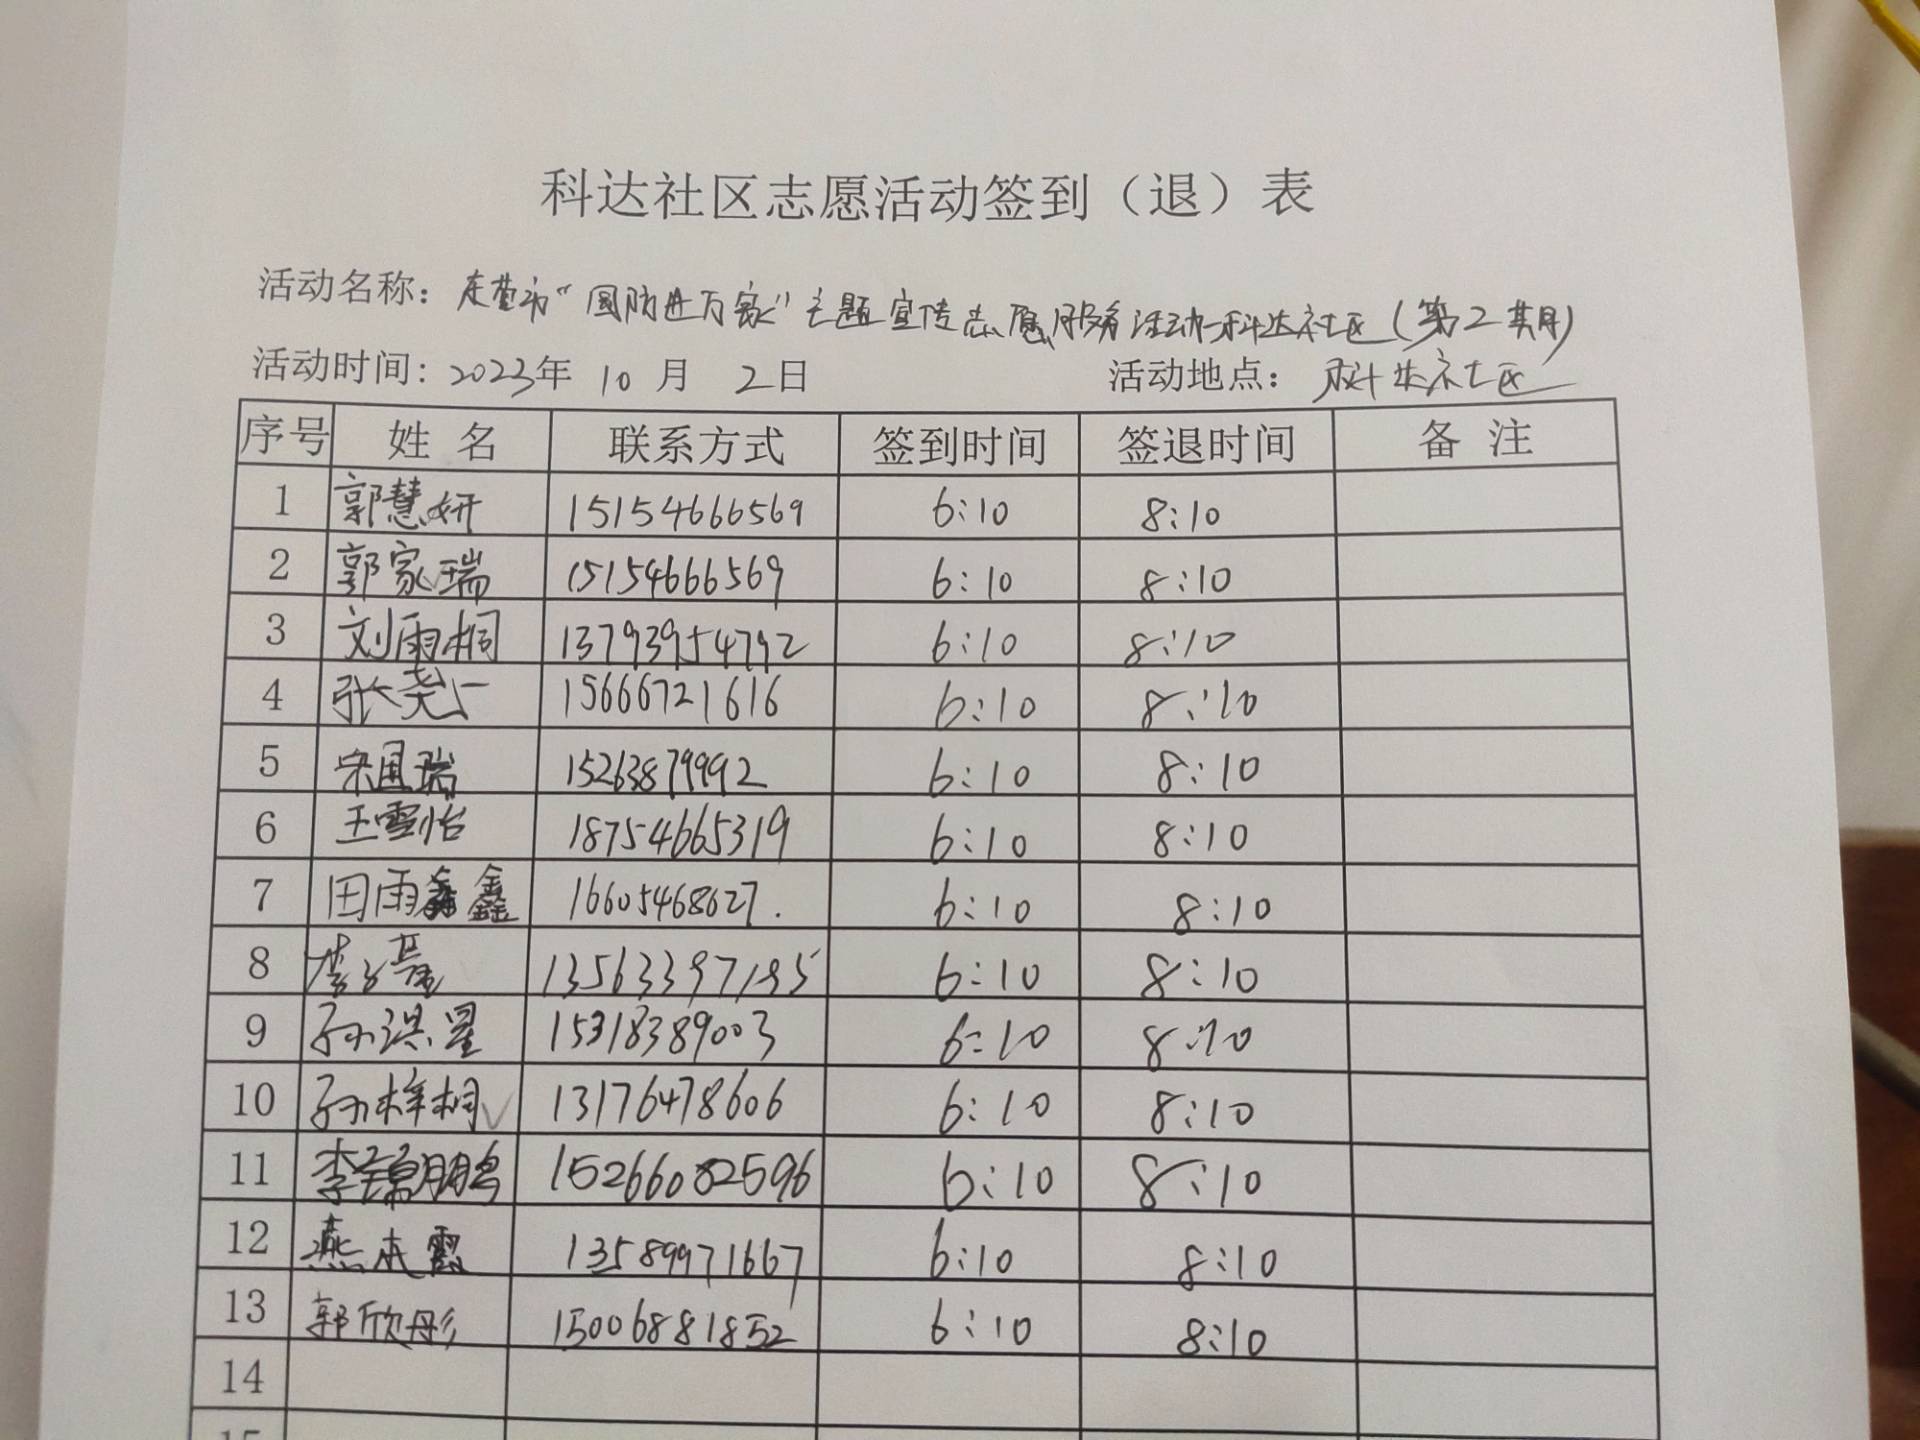 科达社区志愿活动签到（退）表
活动名称：东营市“国防进万家”主题宣传志愿服务活动-科达社区(第2期)
活动时间: 2023年 10 月 2日 活动地点： 科达社区
序号 姓 名 联系方式 签到时间 签退时间 备 注
1 郭慧妍 15154666569 6:10 8:10
2 郭家瑞 15154666569 6:10 8:10
3 刘雨桐 13793954792 6:10 8:10
4 张尧 15666721616 6:10 8:10
5 宋国瑞 15263879992 6:10 8:10
6 王雪怡 18754665319 6:10 8:10
7 田雨鑫 16605468627. 6:10 8:10
8 李 13563397195 6:10 8:10
9 孙淇星 15318389003 6:10 8:10
10 孙梓桐 13176478606 6:10 8:10
11 李锦鹏 15266082596 6:10 8:10
12 燕本霞 13589971667 6:10 8:10
13 郭欣彤 15006881852 6:10 8:10
14
15